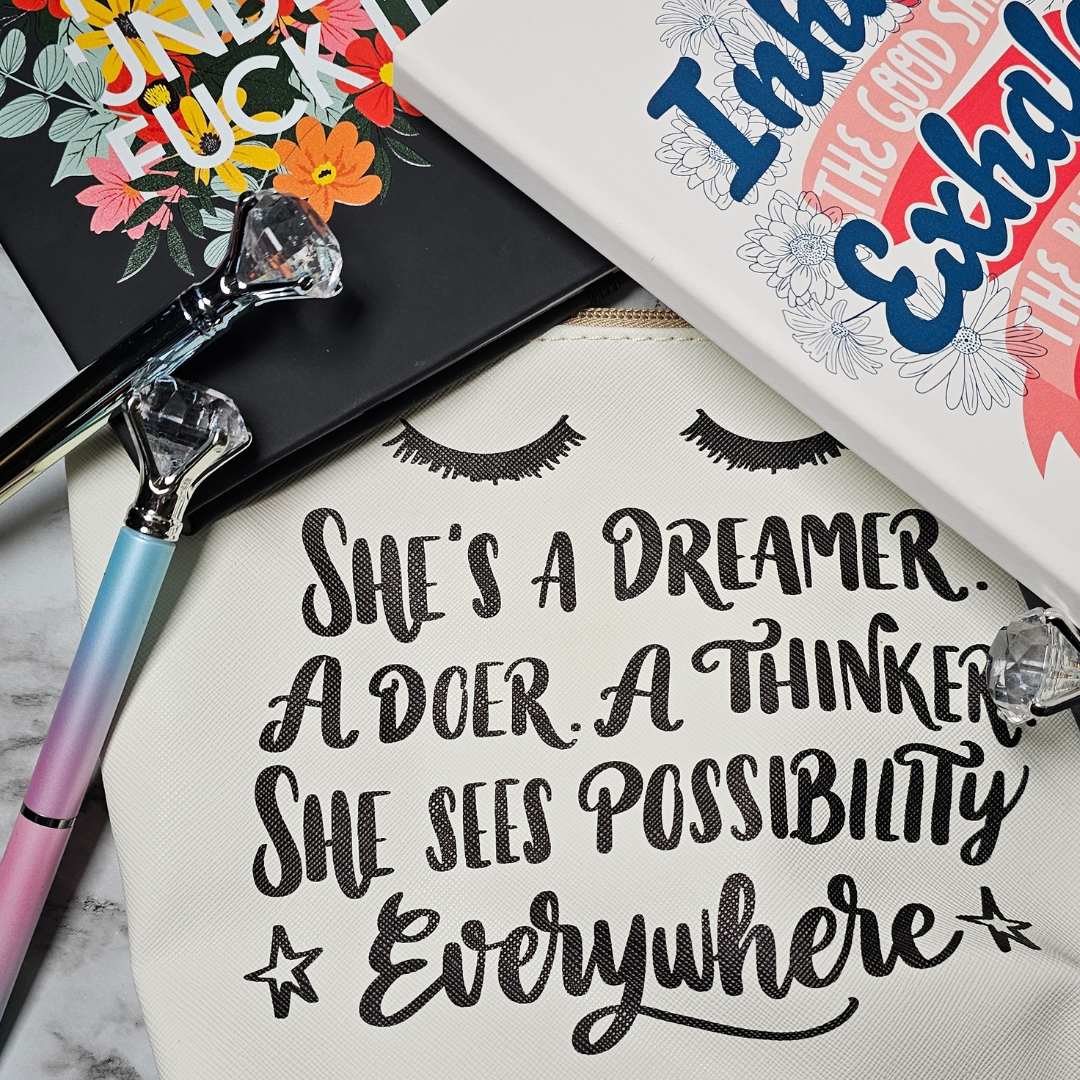 FUCK IT
THE GOOD
Exhale
SHE'S A DREAMER.
A DOER. A THINKER
SHE SEES POSSIBILITY
Everywhere